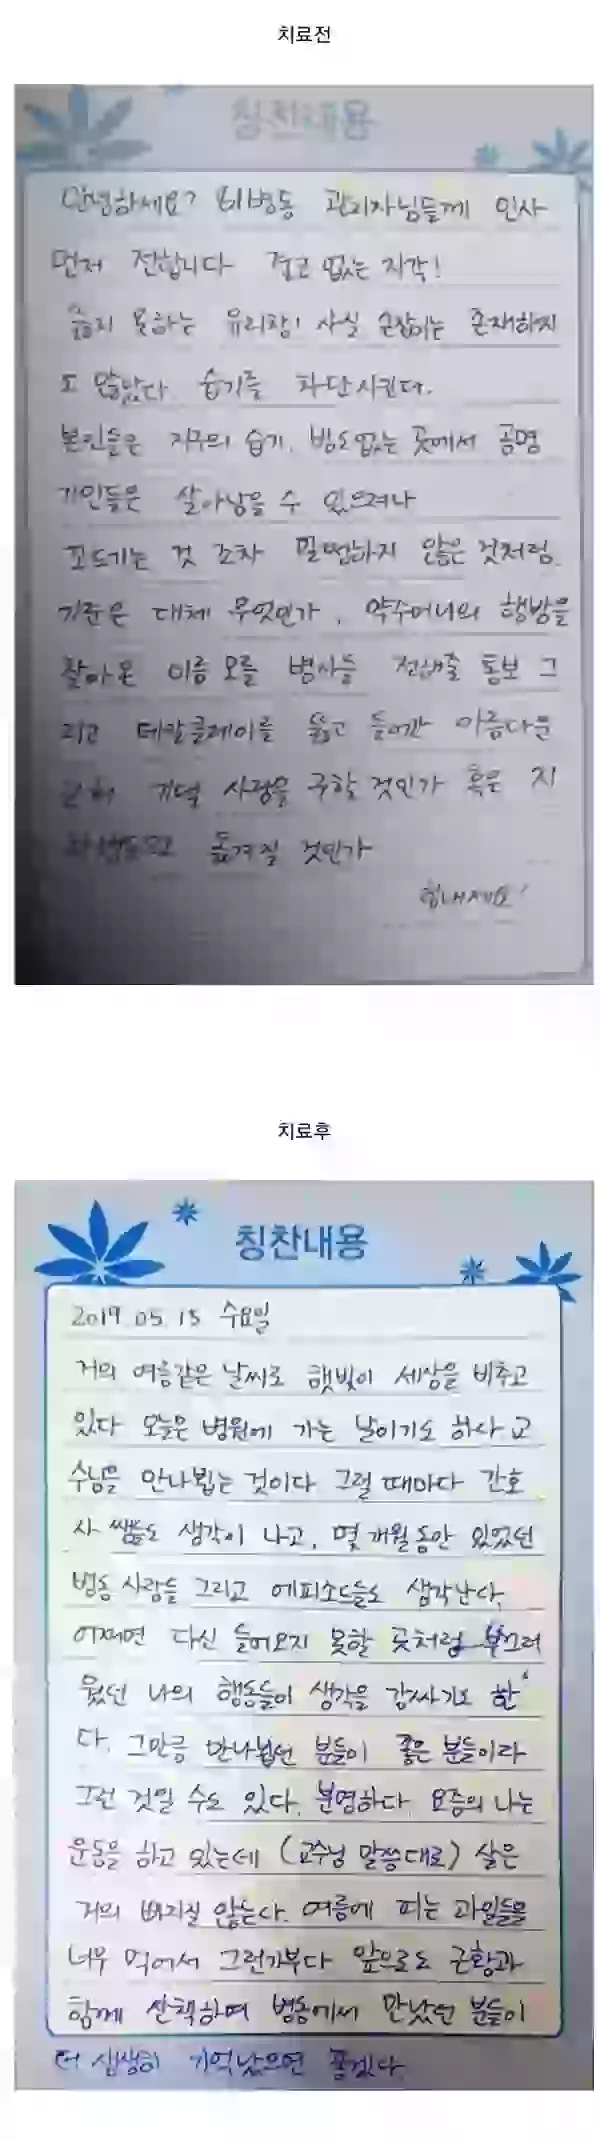 치료전
칭찬내용
안녕하세요? 병동 관리자님들께 인사
먼저 전합니다 경고 없는 지각!
뚫지 못하는 유리창! 사실 손잡이는 존재하지
도 않았다. 습기를 차단시킨다.
본인들은 지구의 습기, 밤도없는 곳에서 공명
기인들은 살아남을 수 있으려나
꼬드기는 것 조차 멀쩡하지 않은 것처럼.
기준은 대체 무엇인가, 약수머니의 행방을
찾아온 이름 모를 병사들 전해줄 통보 그
리고 데칼클레이를 뚫고 들어간 아름다운
사랑을 구할 것인가 혹은 지
옮겨질 것인가
힘내세요!
치료후
칭찬내용
2019 05 15 수요일
거의 여름같은 날씨로 햇빛이 세상을 비추고
있다 오늘은 병원에 가는 날이기도 하사 교
수님을 만나뵙는 것이다 그럴 때마다 간호
사 쌤들도 생각이 나고, 몇 개월동안 있었던
병동 사람들 그리고 에피소드들도 생각난다.
어쩌면 다신 들어오지 못할 곳처럼 부끄러
웠던 나의 행동들이 생각을 감싸기도 한
다. 그만큼 만나뵙던 분들이 좋은 분들이라
그런 것일 수도 있다. 분명하다. 요즘의 나는
운동을 하고 있는데 (교수님 말씀대로) 살은
거의 빠지질 않는다. 여름에 피는 과일들을
너무 먹어서 그런가부다 앞으로도 근황과
함께 산책하며 병동에서 만났던 분들이
더 생생히 기억났으면 좋겠다.